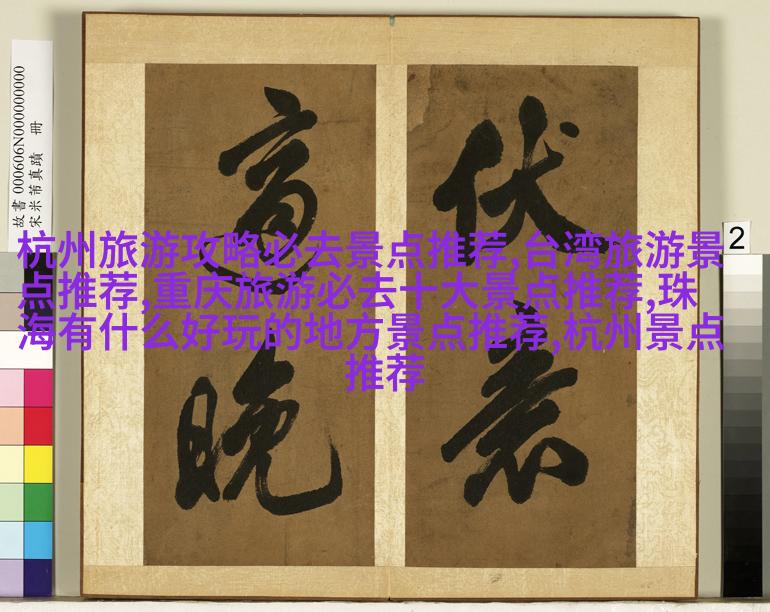 杭州旅游攻略必去景点推荐,台湾旅游景
点推荐,重庆旅游必去十大景点推荐,珠
海有什么好玩的地方景点推荐,杭州景点
推荐
伏
晚
故書 000606N000000000
宋米芾真蹟　冊
2